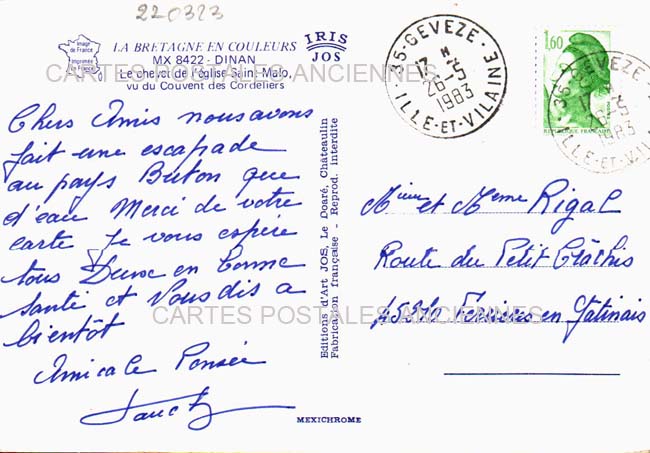 220323
Image de France
Imprimée en France
LA BRETAGNE EN COULEURS
MX 8422 - DINAN
Le chevet de l'église Saint-Malo,
vu du Couvent des Cordeliers
IRIS
JOS
CARTES POSTALES ANCIENNES
35-GEVEZE
26-5
1983
ILLE-ET-VILAINE
1,60
REPUBLIQUE FRANÇAISE
35-GEVEZE
26-5
1983
ILLE-ET-VILAINE
Chers Amis nous avons
fait une escapade
au pays Breton que
d'eau Merci de votre
carte Je vous espère
tous Deux en bonne
santé et Vous dis a
bientôt
Amicale Pensée
Editions d'Art JOS, Le Doaré, Châteaulin
Fabrication française - Reprod. interdite
Mieur et Meme Rigal
Route du Petit
45210 Ferrières en Gatinais
CARTES POSTALES ANCIENNES
MEXICHROME